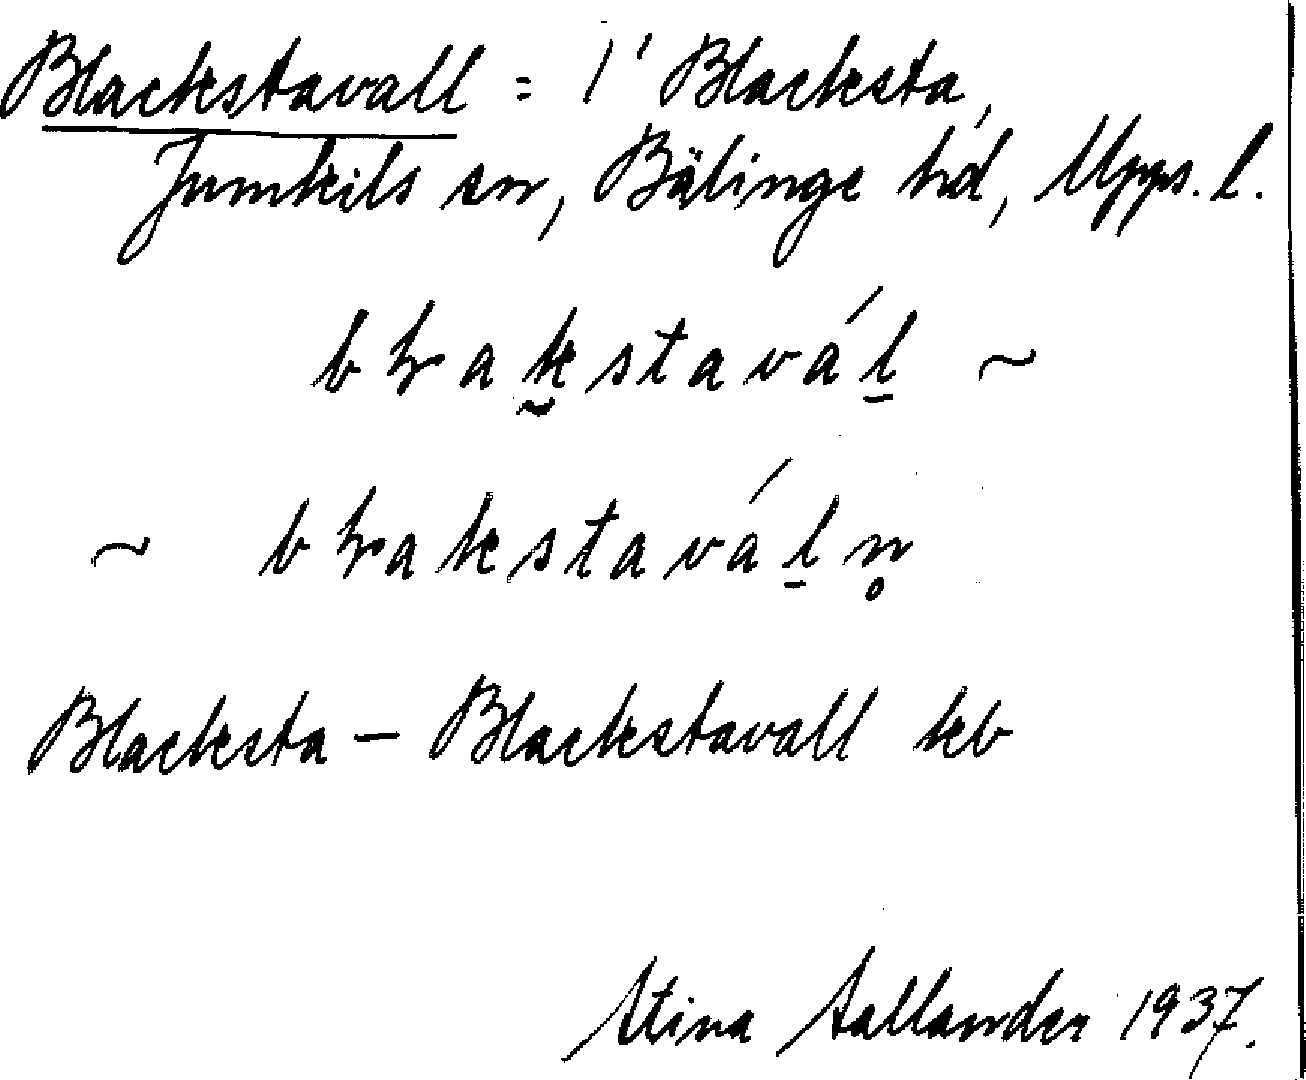 Blackstavall = 1' Blacksta,
Jumkils sn, Bälinge hd, Upps. l.
blak̰stavál̠ ~
~ blakstavál̠n̥
Blacksta – Blackstavall kb
Stina Sallander 1937.